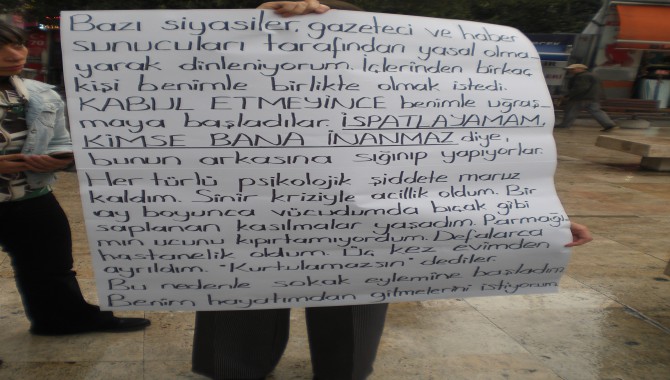 Bazı siyasiler, gazeteci ve haber
sunucuları tarafından yasal olma_
yarak dinleniyorum. İçlerinden birkaç
kişi benimle birlikte olmak istedi.
KABUL ETMEYİNCE benimle uğraş_
maya başladılar. İSPATLAYAMAM,
KİMSE BANA İNANMAZ diye,
bunun arkasına sığınıp yapıyorlar.
Her türlü psikolojik şiddete maruz
kaldım. Sinir kriziyle acillik oldum. Bir
ay boyunca vücudumda bıçak gibi
saplanan kasılmalar yaşadım. Parmağı
mın ucunu kıpırtamıyordum. Defalarca
hastanelik oldum. Üç kez evimden
ayrıldım. "Kurtulamazsın" dediler.
Bu nedenle sokak eylemine başladım
Benim hayatımdan gitmelerini istiyorum